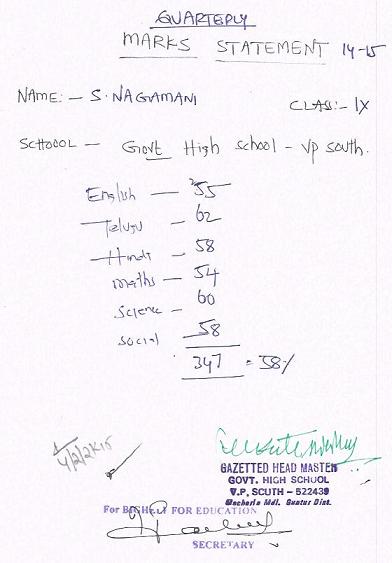 QUARTERLY
MARKS STATEMENT 14-15
NAME:- S. NAGAMANI
CLASS:- IX
SCHOOOL - Govt High school - Vp south.
English - 55
Telugu - 62
Hindi - 58
maths - 54
Science - 60
social 58
347 = 58%
4/2/2K15
GAZETTED HEAD MASTER
GOVT. HIGH SCHOOL
V.P. SOUTH - 522439
Macherla Mdl. Guntur Dist.
FOR EDUCATION
SECRETARY